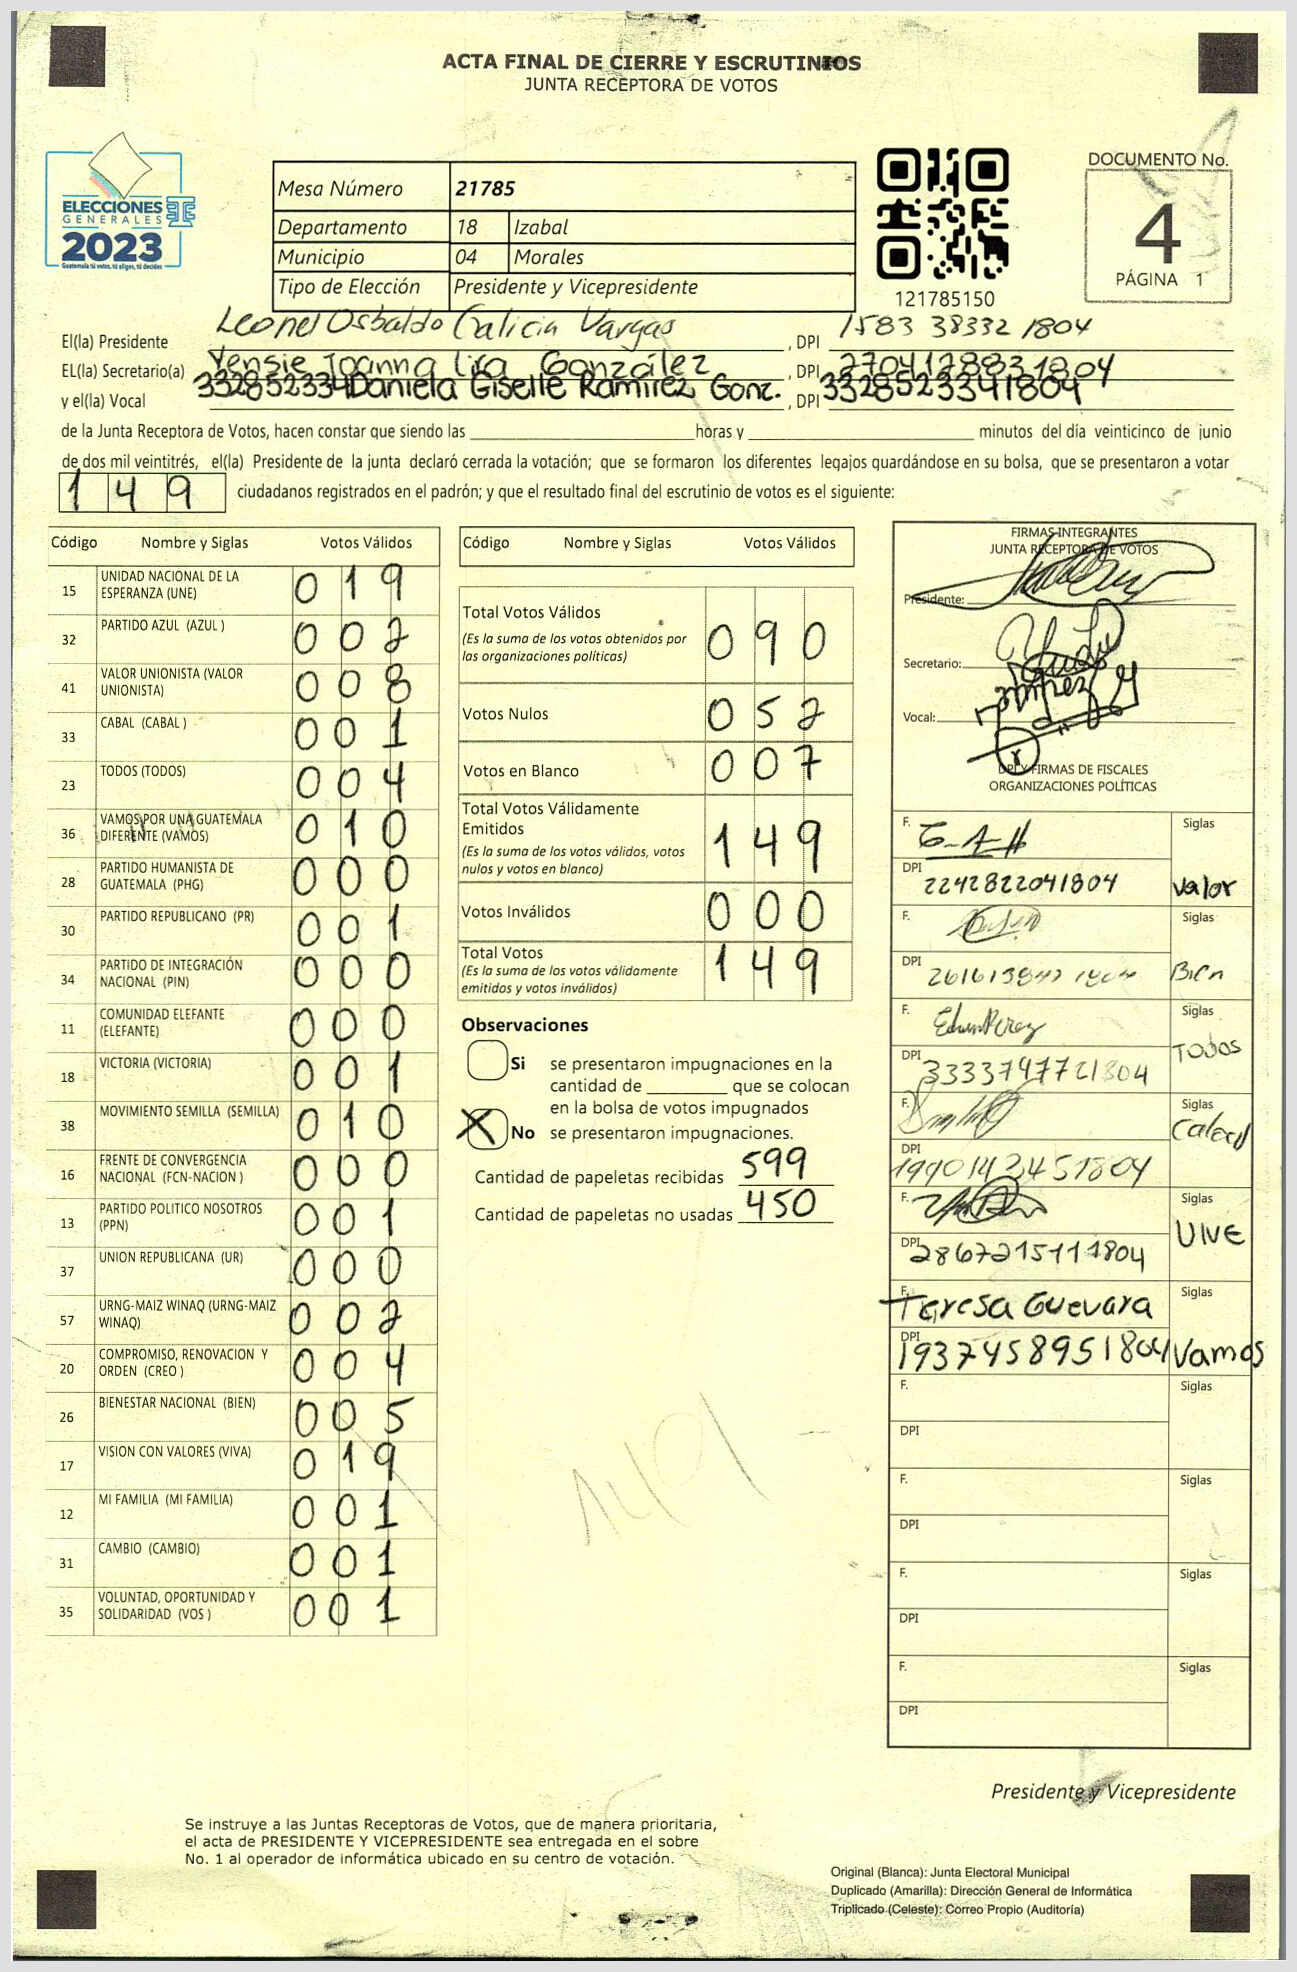 ACTA FINAL DE CIERRE Y ESCRUTINIOS
JUNTA RECEPTORA DE VOTOS
ELECCIONES
GENERALES
2023
Guatemala tú votas, tú eliges, tú decides
Mesa Número 21785
Departamento 18 Izabal
Municipio 04 Morales
Tipo de Elección Presidente y Vicepresidente
121785150
DOCUMENTO No.
4
PÁGINA 1
El(la) Presidente Leonel Osbaldo Galicia Vargas, DPI 1583 38332 1804
EL(la) Secretario(a) Yensie Joanna Lira González, DPI 270412883 1804
y el(la) Vocal 332852334 Daniela Giselle Ramirez Gonz., DPI 3328523341804
de la Junta Receptora de Votos, hacen constar que siendo las horas y minutos del día veinticinco de junio
de dos mil veintitrés, el(la) Presidente de la junta declaró cerrada la votación; que se formaron los diferentes legajos guardándose en su bolsa, que se presentaron a votar
149 ciudadanos registrados en el padrón; y que el resultado final del escrutinio de votos es el siguiente:
Código Nombre y Siglas Votos Válidos
15 UNIDAD NACIONAL DE LA ESPERANZA (UNE) 019
32 PARTIDO AZUL (AZUL ) 002
41 VALOR UNIONISTA (VALOR UNIONISTA) 008
33 CABAL (CABAL ) 001
23 TODOS (TODOS) 004
36 VAMOS POR UNA GUATEMALA DIFERENTE (VAMOS) 010
28 PARTIDO HUMANISTA DE GUATEMALA (PHG) 000
30 PARTIDO REPUBLICANO (PR) 001
34 PARTIDO DE INTEGRACIÓN NACIONAL (PIN) 000
11 COMUNIDAD ELEFANTE (ELEFANTE) 000
18 VICTORIA (VICTORIA) 001
38 MOVIMIENTO SEMILLA (SEMILLA) 010
16 FRENTE DE CONVERGENCIA NACIONAL (FCN-NACION ) 000
13 PARTIDO POLITICO NOSOTROS (PPN) 001
37 UNION REPUBLICANA (UR) 000
57 URNG-MAIZ WINAQ (URNG-MAIZ WINAQ) 002
20 COMPROMISO, RENOVACION Y ORDEN (CREO ) 004
26 BIENESTAR NACIONAL (BIEN) 005
17 VISION CON VALORES (VIVA) 019
12 MI FAMILIA (MI FAMILIA) 001
31 CAMBIO (CAMBIO) 001
35 VOLUNTAD, OPORTUNIDAD Y SOLIDARIDAD (VOS ) 001
Código Nombre y Siglas Votos Válidos
Total Votos Válidos 090
(Es la suma de los votos obtenidos por
las organizaciones políticas)
Votos Nulos 052
Votos en Blanco 007
Total Votos Válidamente
Emitidos 149
(Es la suma de los votos válidos, votos
nulos y votos en blanco)
Votos Inválidos 000
Total Votos 149
(Es la suma de los votos válidamente
emitidos y votos inválidos)
Observaciones
Si se presentaron impugnaciones en la
cantidad de que se colocan
en la bolsa de votos impugnados
X No se presentaron impugnaciones.
Cantidad de papeletas recibidas 599
Cantidad de papeletas no usadas 450
149
FIRMAS INTEGRANTES
JUNTA RECEPTORA DE VOTOS
Presidente:
Secretario:
Vocal: Ramirez G
DPI Y FIRMAS DE FISCALES
ORGANIZACIONES POLÍTICAS
F. Siglas
DPI 2242822041804 Valor
F. Siglas
DPI Bien
F. Edwin Perez Siglas
DPI 3333747721804 TODOS
F. Siglas
DPI 1990143451804
F. Siglas
DPI 2867215111804
F. Teresa Guevara Siglas
DPI 1937458951804 Vamos
F. Siglas
DPI
F. Siglas
DPI
F. Siglas
DPI
F. Siglas
DPI
Presidente y Vicepresidente
Se instruye a las Juntas Receptoras de Votos, que de manera prioritaria,
el acta de PRESIDENTE Y VICEPRESIDENTE sea entregada en el sobre
No. 1 al operador de informática ubicado en su centro de votación.
Original (Blanca): Junta Electoral Municipal
Duplicado (Amarilla): Dirección General de Informática
Triplicado (Celeste): Correo Propio (Auditoría)